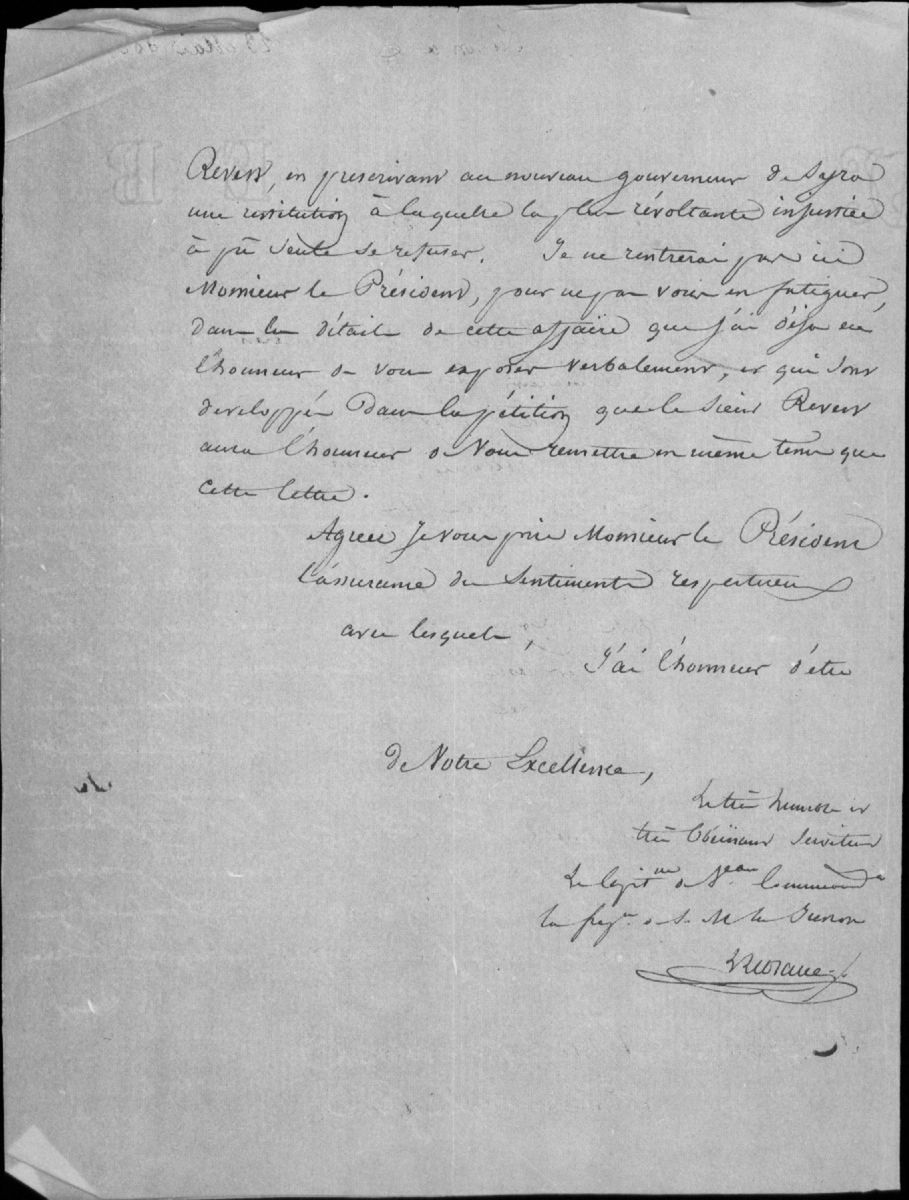 Revest, en prescrivant au nouveau gouverneur de Syra
une restitution à laquelle la plus révoltante injustice
à pû seule se refuser. Je ne rentrerai pas ici
Monsieur le Président, pour ne pas vous en fatiguer,
dans les détails de cette affaire que j'ai déja eu
l'honneur de vous exposer verbalement, et qui sont
developpés dans la pétition que le sieur Revest
aura l'honneur de Vous remettre en même tems que
cette lettre.
Agreez Je vous prie Monsieur le Président
l'assurance des Sentiments respectueux
avec lesquels,
J'ai l'honneur d'être
de Votre Excellence,
Le très humble et
très Obéissant Serviteur
Le Capit.ne de V.eau Commandt
la frég.te de S. M. la Junon